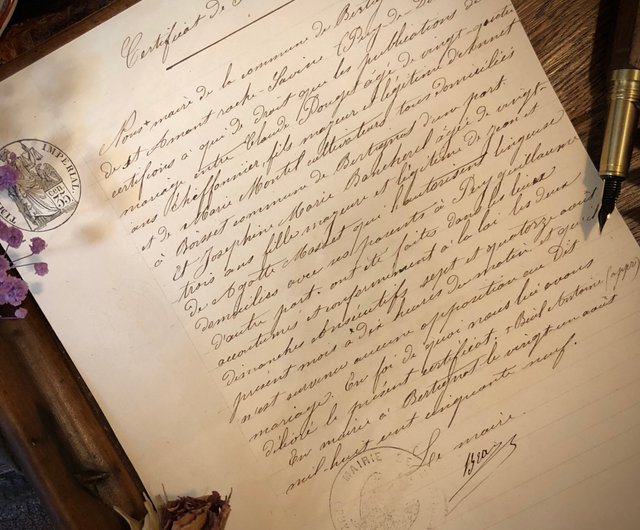 Certificat de
Nous maire de la commune de Bertig
de St Amant roche-Savine (Puy de Dô
certifions à qui de droit que les publications de
mariage entre Claude Pouget âgé de vingt-quatre
ans Chiffonnier, fils majeur et légitime de Annet
et de Marie Montel cultivateurs tous domiciliés
à Boisset commune de Bertignat d'une part.
Et Joséphine Marie Bancherel âgée de vingt-
trois ans fille majeure et légitime de Jean et
de Agathe Mosset qui l'autorisent, lingeuse
domiciliée avec ses parents à Puy guillaume
d'autre part. ont été faites dans les lieux
accoutumés et conformément à la loi les deux
dimanches consécutifs sept et quatorze août
présent mois à dix heures du matin et qu'il
n'est survenu aucune opposition au Dit
mariage. En foi de quoi nous lui avons
délivré le présent certificat, Antoine (appr
En mairie à Bertignat le vingt un août
mil huit cent cinquante neuf.
Le maire.
TIM IMPERIAL
35
MAIRIE DE